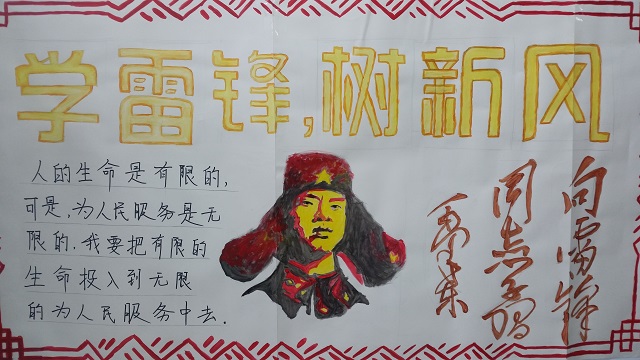 学雷锋,树新风
人的生命是有限的,
可是,为人民服务是无
限的.我要把有限的
生命投入到无限
的为人民服务中去.
向雷锋
同志学习
毛泽东